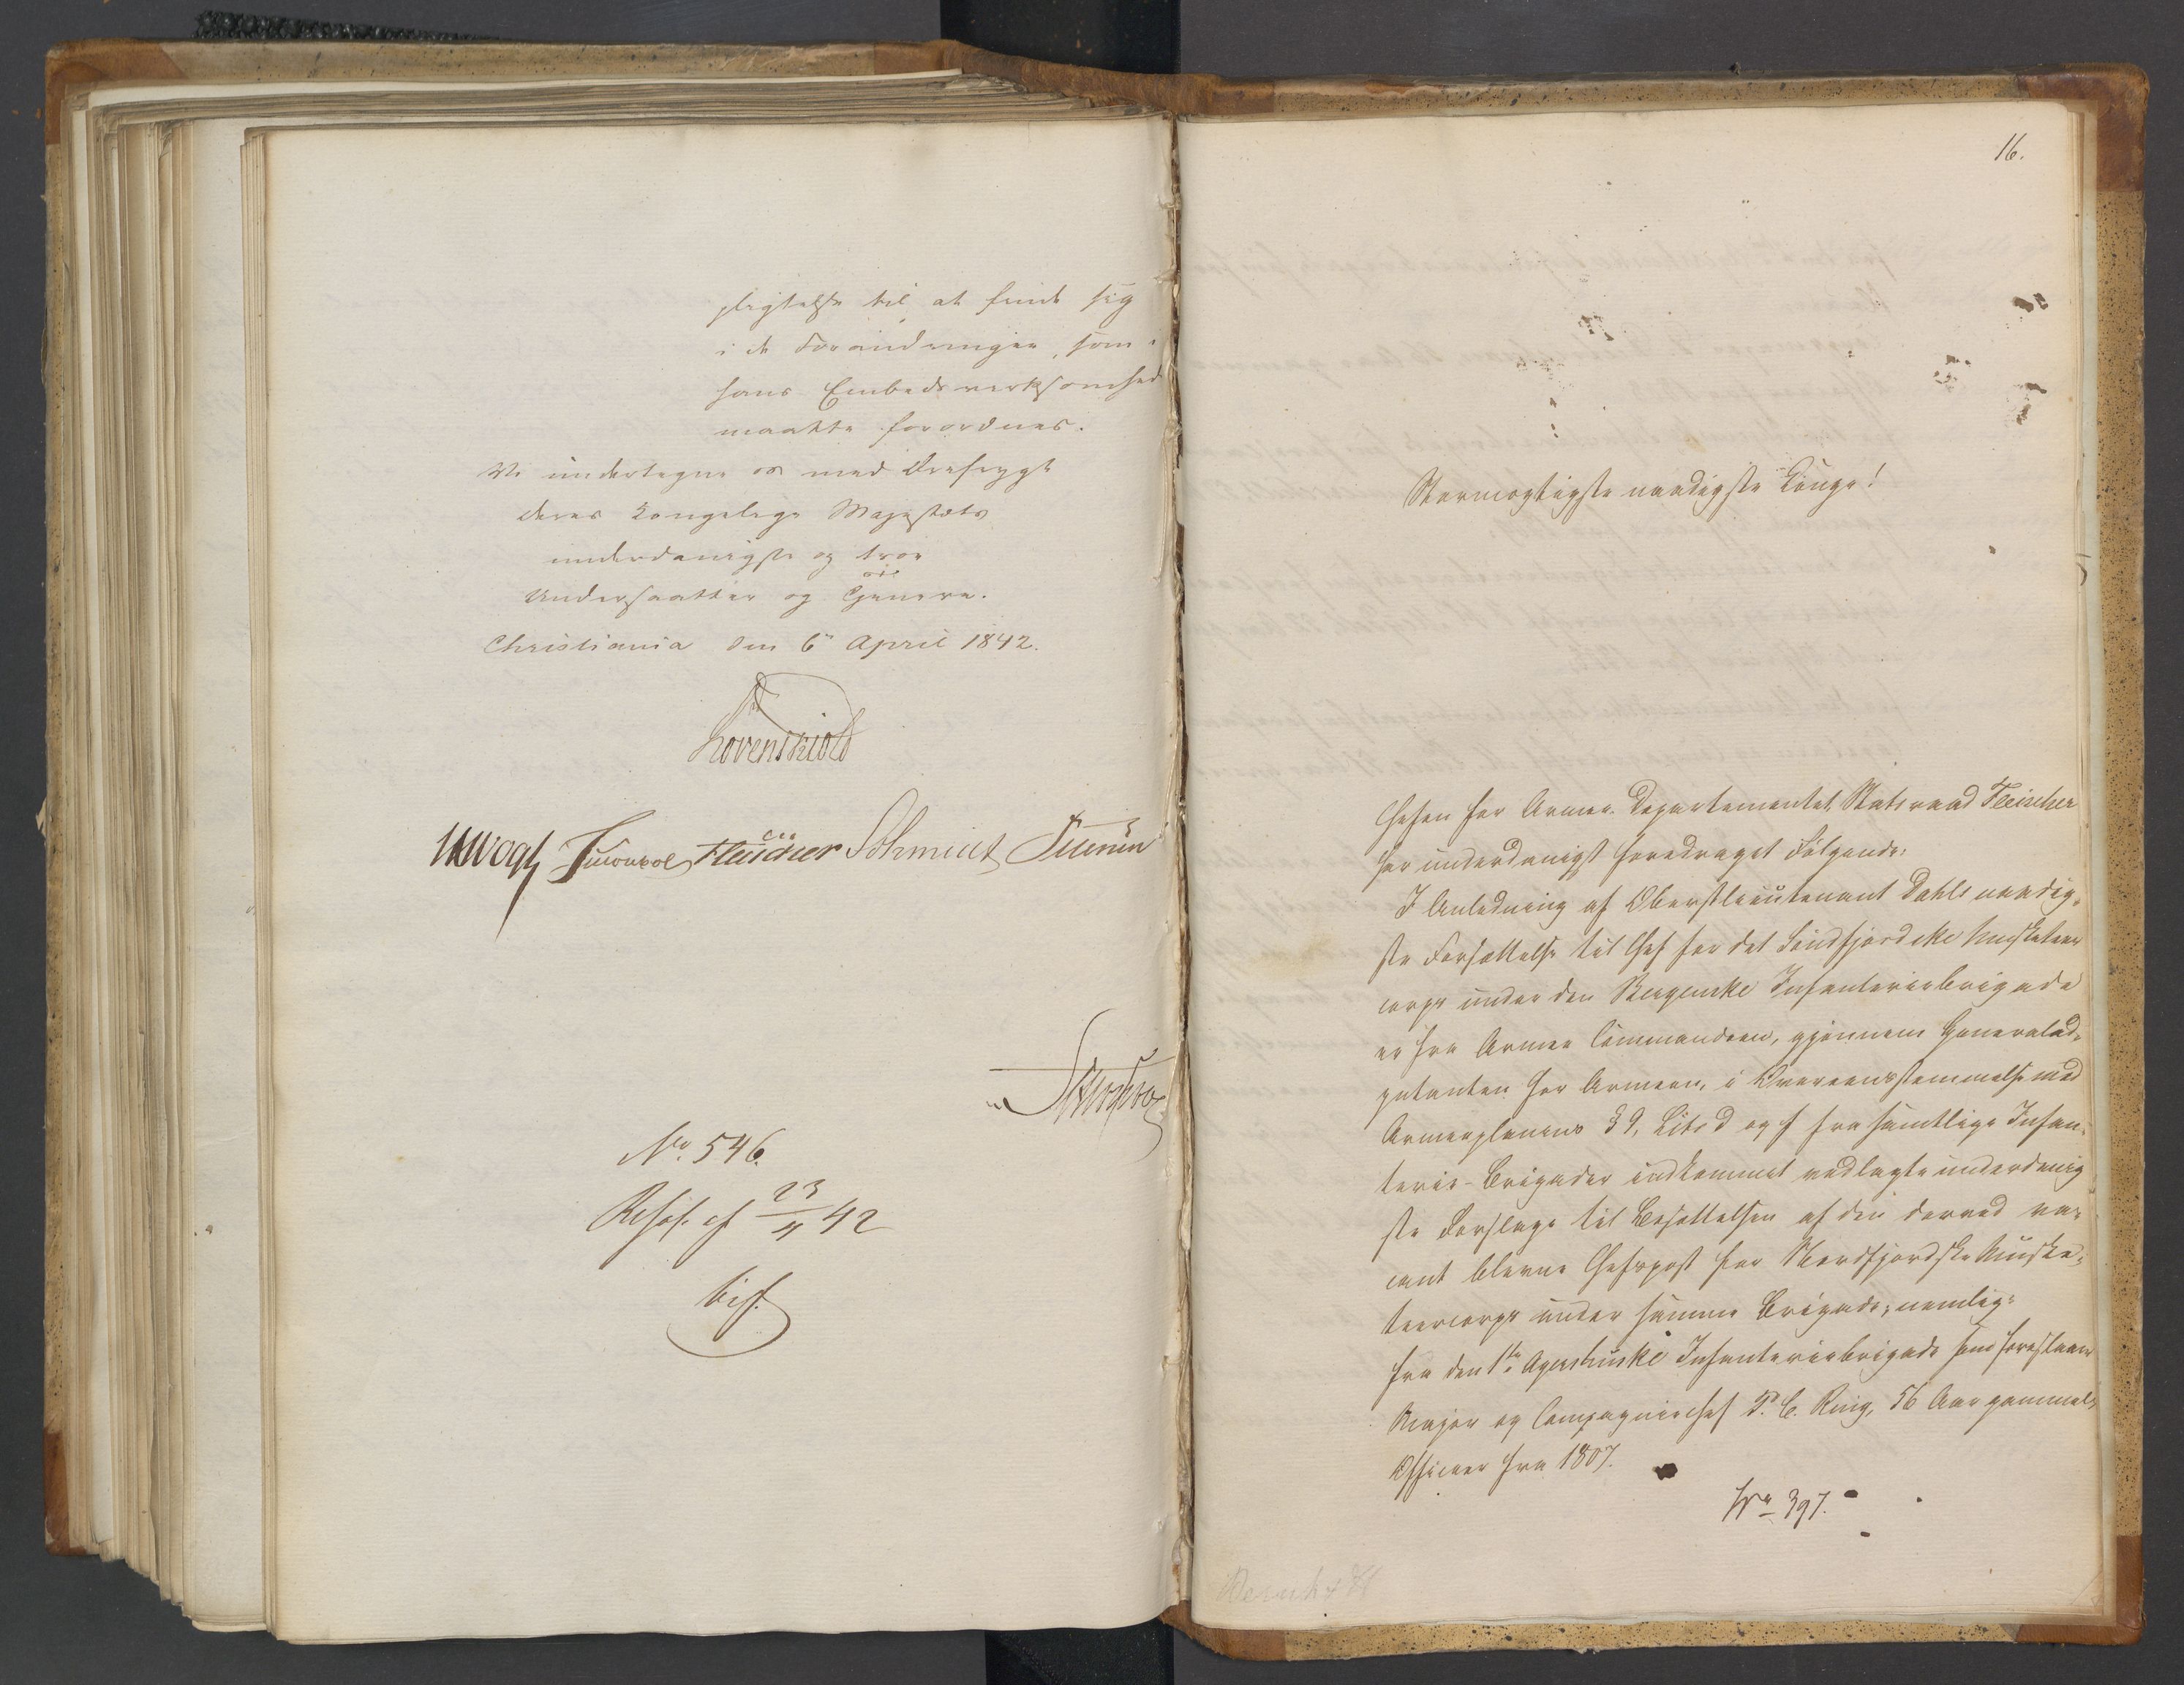 pligtelse til at finde sig
i de Forandringer, som i
hans Embedsvirksomhed
maatte forordnes.
Vi undertegne os med Ærefrygt
Deres Kongelige Majestæts
underdanigste og troe
Undersaatter og Tjenere.
Christiania den 6 April 1842.
Løvenskiold
Vogt Fleischer Schmidt
No. 546.
Resol. af 23/4 42
16.
Stormægtigste naadigste Konge!
Chefen for Armee-Departementet, Statsraad Fleischer
har underdanigst foredraget Følgende:
I Anledning af Oberstlieutenant Dahls naadig-
ste Forsættelse til Chef for det Søndfjordske Musketeer
corps under den Bergenske Infanteriebrigade
er fra Armee Commandoen, gjennem Generalad-
jutanten for Armeen, i Overeensstemmelse med
Armeeplanens § 9, Litr. d og f fra samtlige Infan-
terie-Brigader indkommet vedlagte underdanig
ste Forslage til Besættelsen af den derved va-
cant blevne Chefspost for Nordfjordske Muske-
teercorps under samme Brigade, nemlig:
fra den 1ste Agershuuske Infanteriebrigade som foreslaaer
Major og Compagniechef P. C. Ring, 56 Aar gammel,
Officeer fra 1807.
No 397.